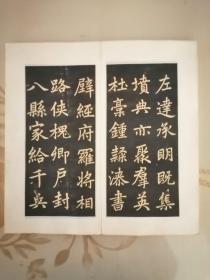 左達承明既集
墳典亦聚群英
杜稾鍾隸漆書
壁經府羅將相
路俠槐卿戶封
八縣家給千兵